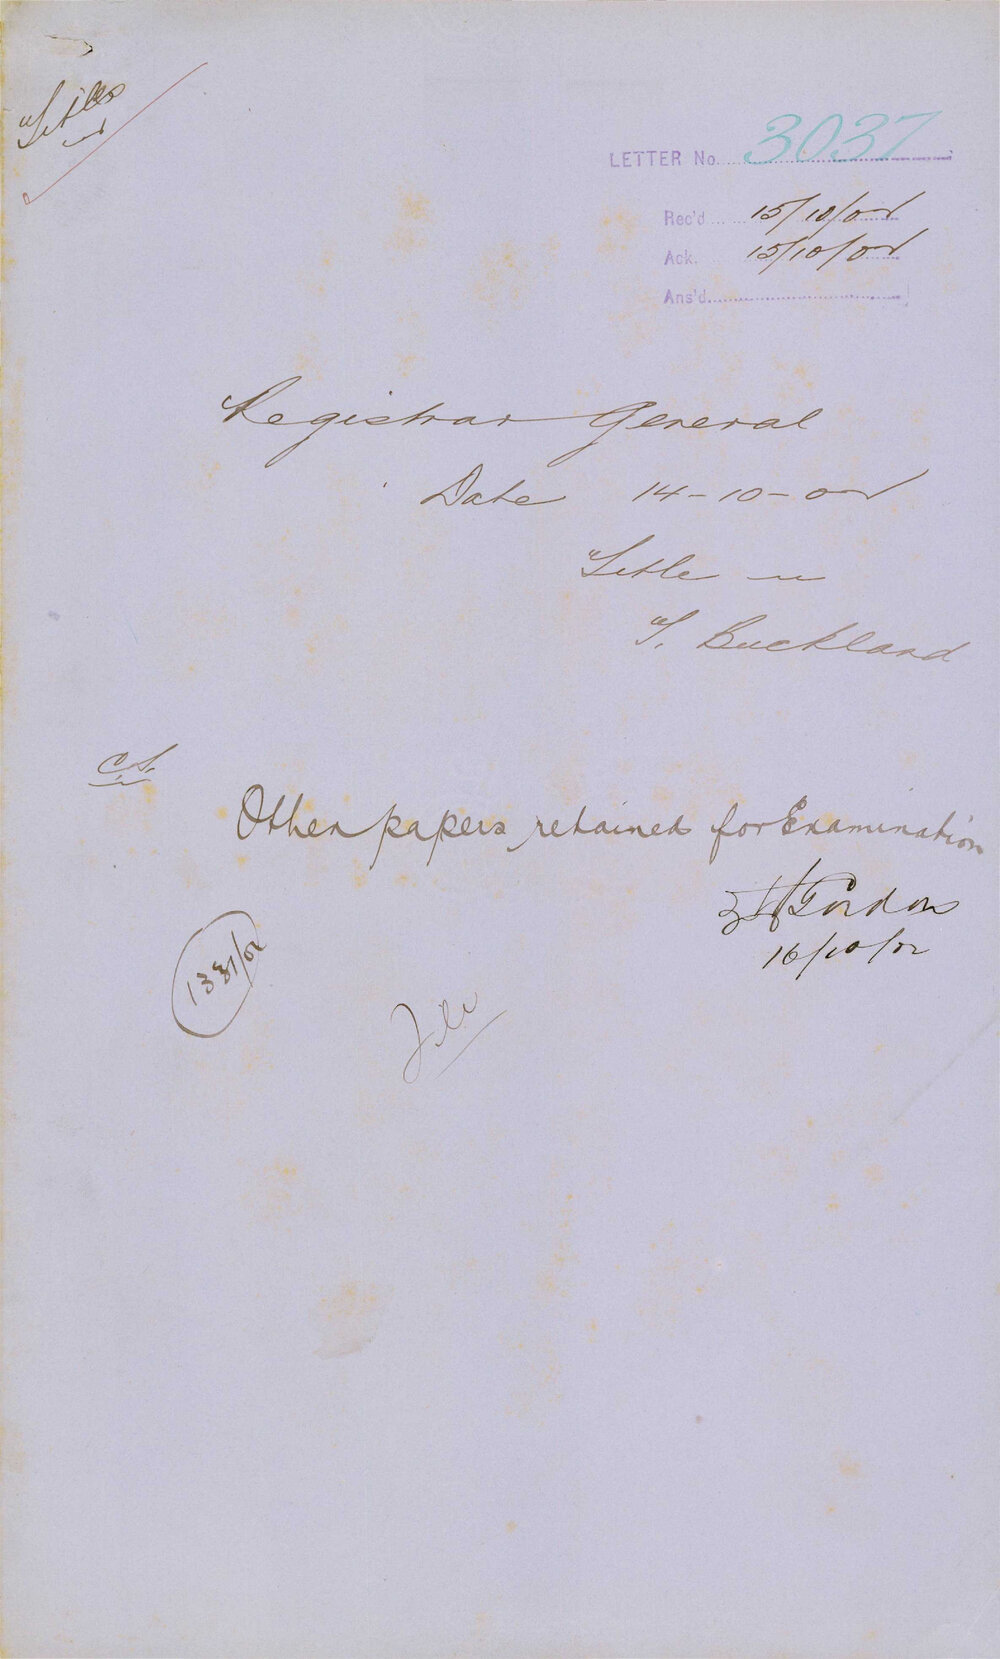 Titles
LETTER No. 3037
Rec'd 15/10/02
Ack. 15/10/02
Ans'd
Registrar General
Date 14-10-02
Title
T. Buckland
C.S.
Other papers retained for Examination
Gordon
16/10/02
1381/02
File